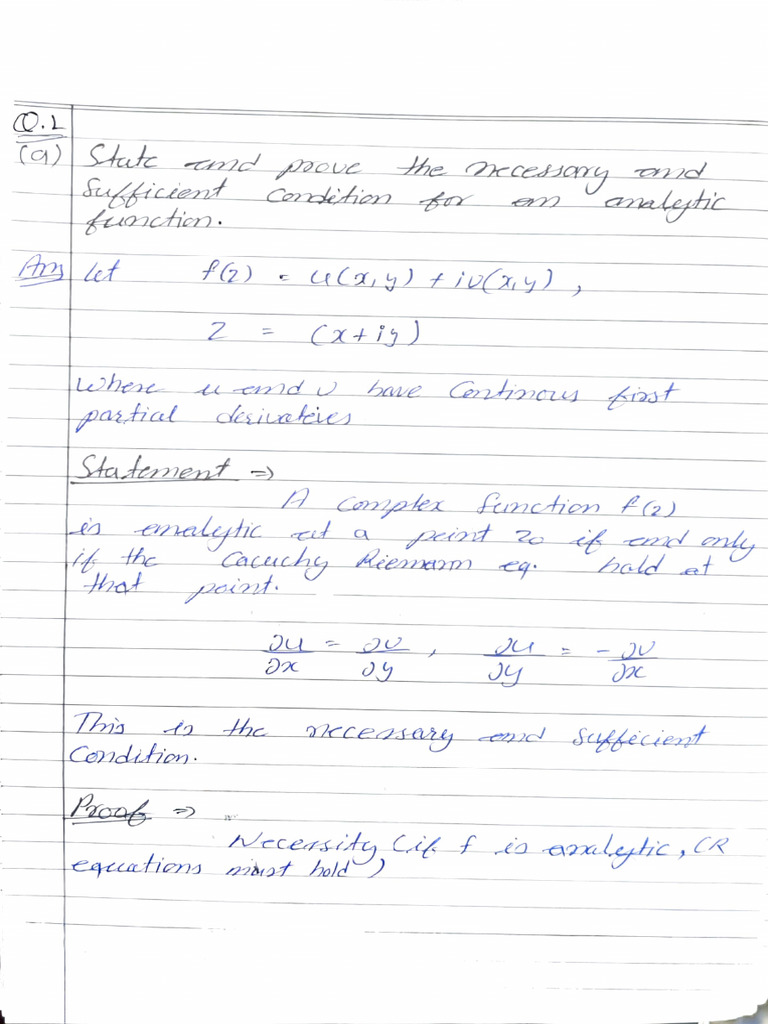 Q.1
(a) State and prove the necessary and
sufficient condition for an analytic
function.
Ans Let f(z) = u(x,y) + iv(x,y) ,
z = (x+iy)
Where u and v have Continous first
partial derivatives
Statement ⇒
A complex function f(z)
is analytic at a point z0 if and only
if the Cacuchy Riemann eq. hold at
that point.
∂u/∂x = ∂v/∂y , ∂u/∂y = -∂v/∂x
This is the necessary and sufficient
Condition.
Proof ⇒
Necessity (if f is analytic, CR
equations must hold)